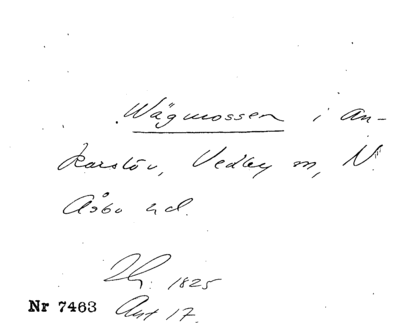 Wägmossen i An-
karslöv, Vedby sn, N.
Åsbo hd.
1825
Nr 7463 Ant 17.